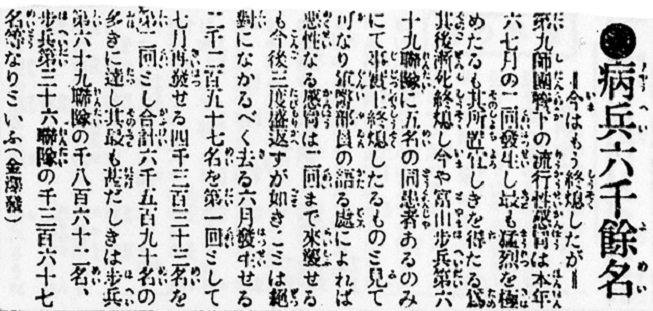 ●病兵六千餘名
＝今はもう終熄したが＝
第九師團管下の流行性感冒は本年
六七月の二回發生し最も猛烈を極
めたるも其所置宜しきを得たる爲
其後漸次終熄し今や富山步兵第六
十九聯隊に五名の同患者あるのみ
にて事實上終熄したるものと見て
可なり軍醫部員の語る處によれば
悪性なる感冒は二回まで來襲せる
も今後三度盛返すが如きことは絕
對になかるべく去る六月發生せる
二千二百五十七名を第一回として
七月再發せる四千三百三十三名を
第二回とし合計六千五百九十名の
多きに達し其最も甚だしきは步兵
第六十九聯隊の千八百六十二名、
步兵第三十六聯隊の千三百六十七
名等なりといふ（金澤發）